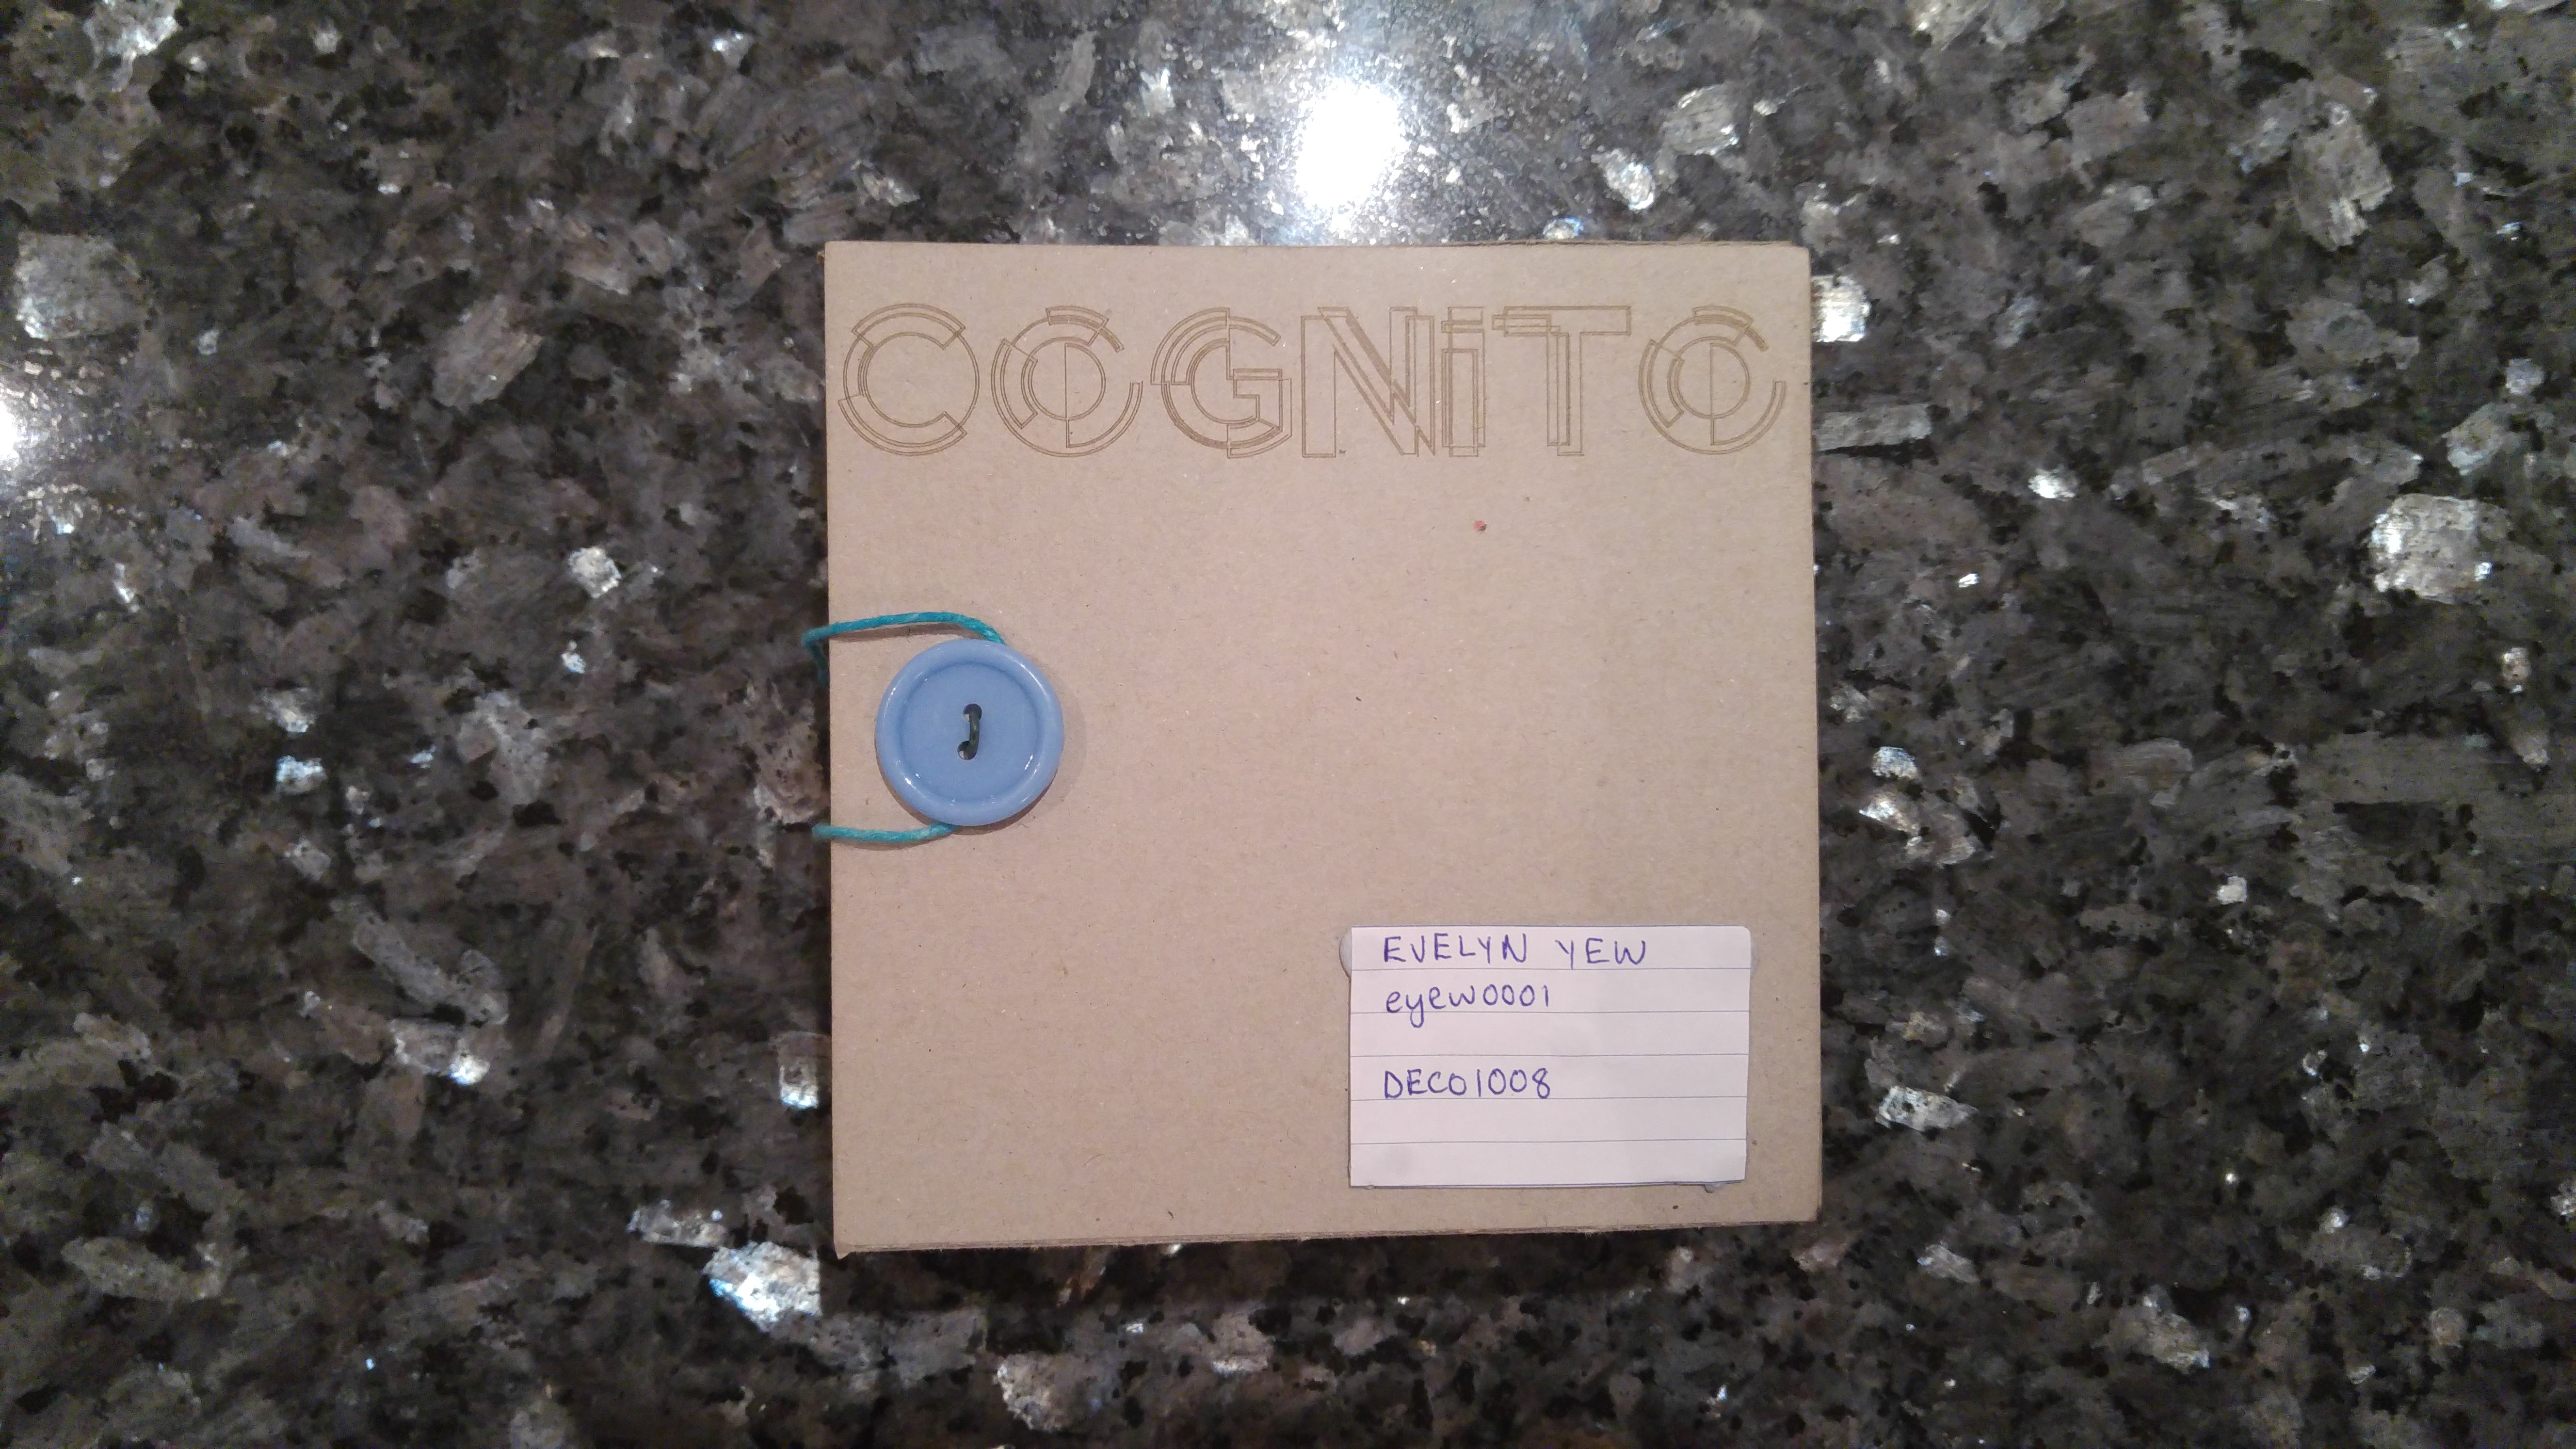 COGNiTO
EVELYN YEW
eyew0001
DECO1008